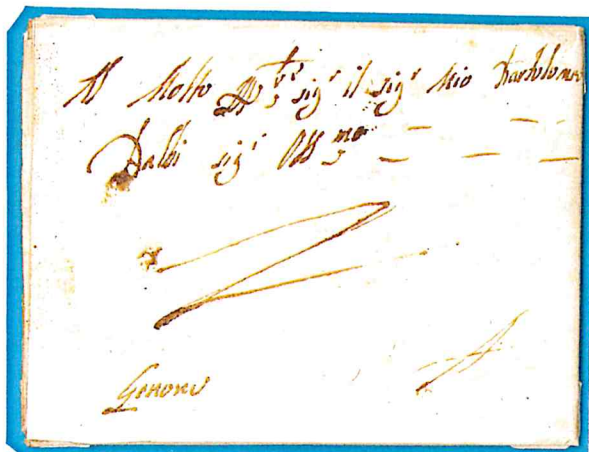 Al Molto Ill.re sig.r il sig.r Mio Bartolomeo
Balbi sig.r Oss.mo
Genova